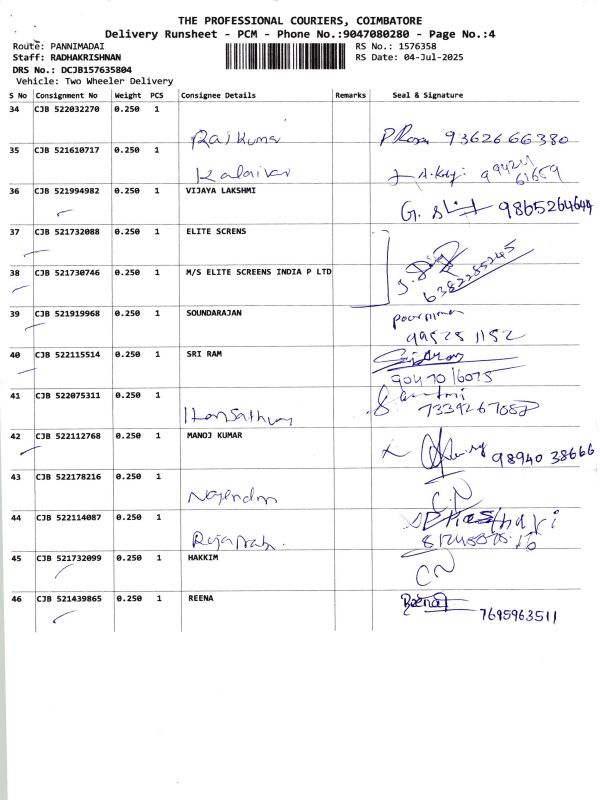 THE PROFESSIONAL COURIERS, COIMBATORE
Delivery Runsheet - PCM - Phone No.:9047080280 - Page No.:4
Route: PANNIMADAI
RS No.: 1576358
Staff: RADHAKRISHNAN
RS Date: 04-Jul-2025
DRS No.: DCJB157635804
Vehicle: Two Wheeler Delivery
S No Consignment No Weight PCS Consignee Details Remarks Seal & Signature
34 CJB 522032270 0.250 1
Rajkumar 9362666380
35 CJB 521610717 0.250 1
Kalaivar 99424
61659
36 CJB 521994982 0.250 1 VIJAYA LAKSHMI
G. 9865264644
37 CJB 521732088 0.250 1 ELITE SCRENS
38 CJB 521730746 0.250 1 M/S ELITE SCREENS INDIA P LTD
6382285245
39 CJB 521919968 0.250 1 SOUNDARAJAN
995251152
40 CJB 522115514 0.250 1 SRI RAM
90470 16075
41 CJB 522075311 0.250 1
7339267087
42 CJB 522112768 0.250 1 MANOJ KUMAR
98940 38666
43 CJB 522178216 0.250 1
Nagendra CN
44 CJB 522114087 0.250 1
45 CJB 521732099 0.250 1 HAKKIM
CN
46 CJB 521439865 0.250 1 REENA
Reena
7695963511